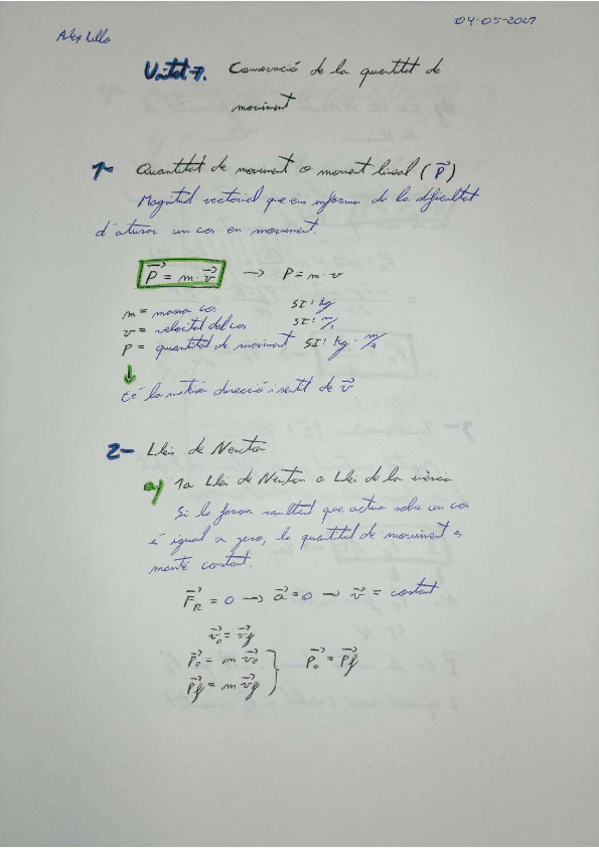 04-05-2021
Alex Lillo
Unitat 7. Conservació de la quantitat de
moviment
1- Quantitat de moviment o moment lineal (P⃗)
Magnitud vectorial que ens informa de la dificultat
d'aturar un cos en moviment.
P⃗ = m · v⃗ → P = m · v
m = massa cos SI: Kg
v = velocitat del cos SI: m/s
P = quantitat de moviment SI: Kg · m/s
↓
té la mateixa direcció i sentit de v⃗
2- Lleis de Newton
a) 1a Llei de Newton o Llei de la inèrcia
Si la força resultant que actua sobre un cos
és igual a zero, la quantitat de moviment es
manté constant.
F⃗R = 0 → a⃗ = 0 → v⃗ = constant
v⃗0 = v⃗f
P⃗0 = m v⃗0 } P⃗0 = P⃗f
P⃗f = m v⃗f